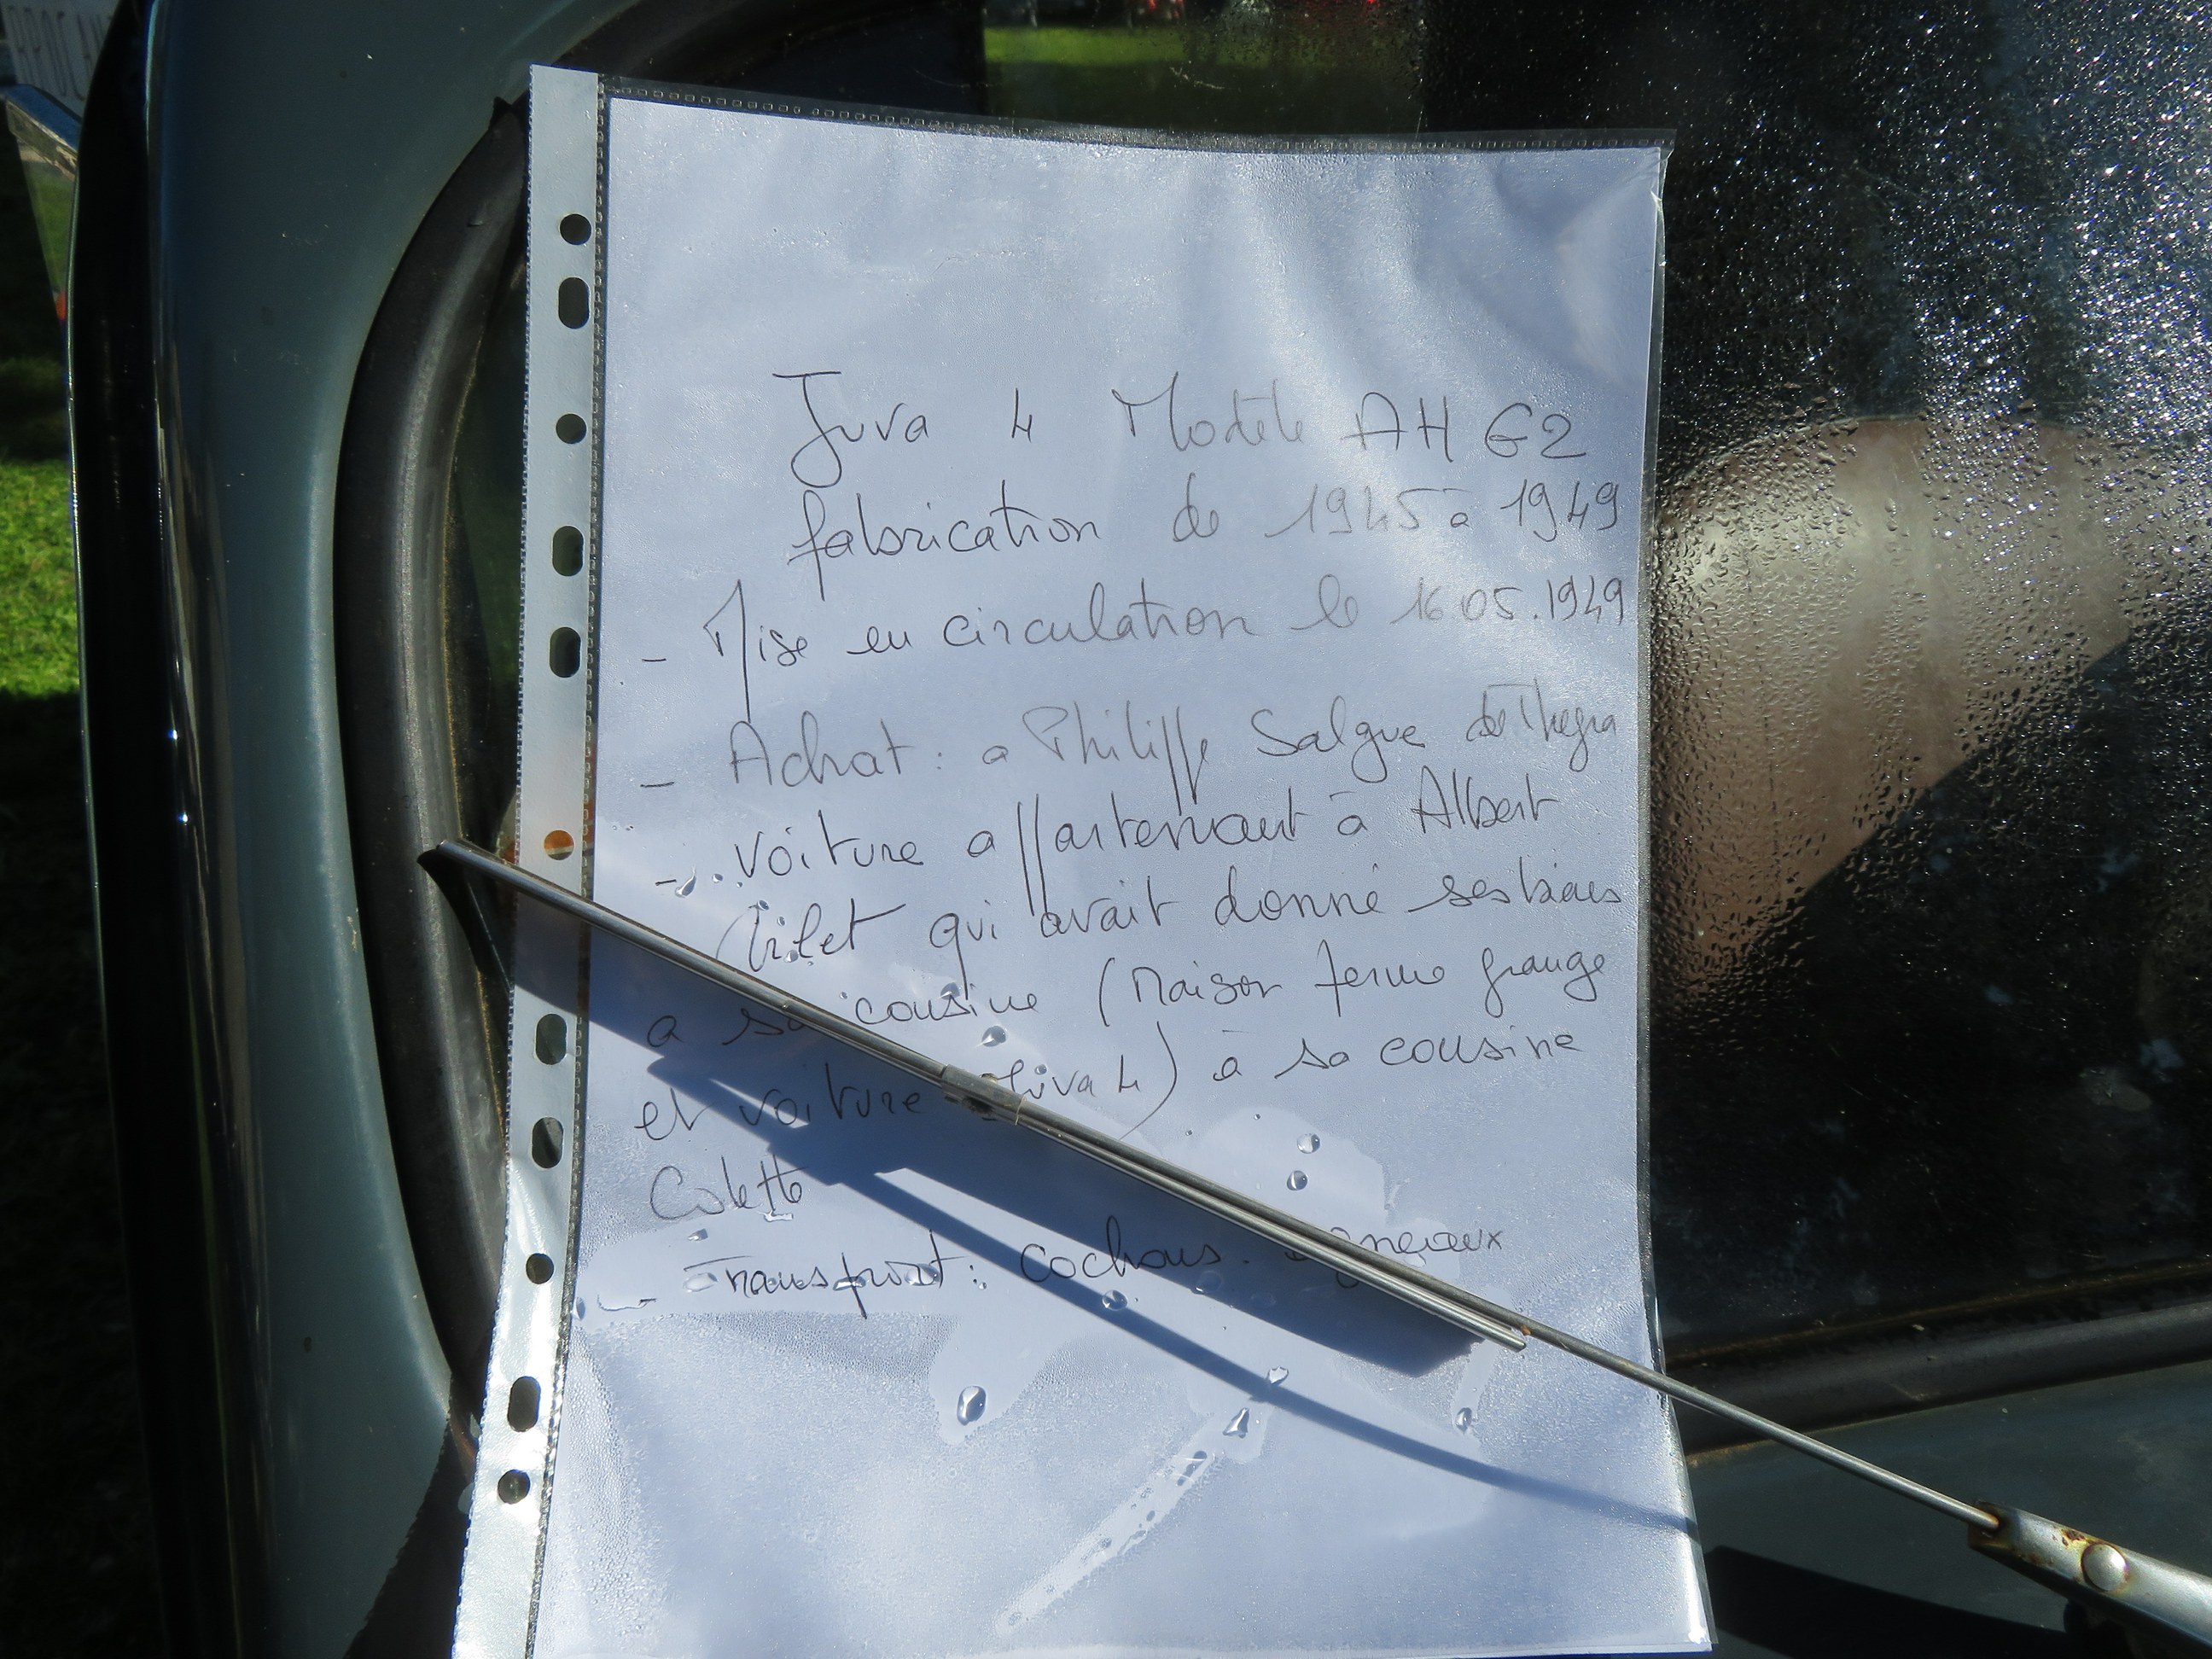 Juva 4 Modèle AH G2
fabrication de 1945 à 1949
- Mise en circulation le 16.05.1949
- Achat : a Philippe Salgue de Thegra
- voiture appartenant à Albert
qui avait donné ses biens
a sa cousine (Maison ferme grange
et voiture Juva 4) à sa cousine
Colette
- Transport : cochons. agneaux